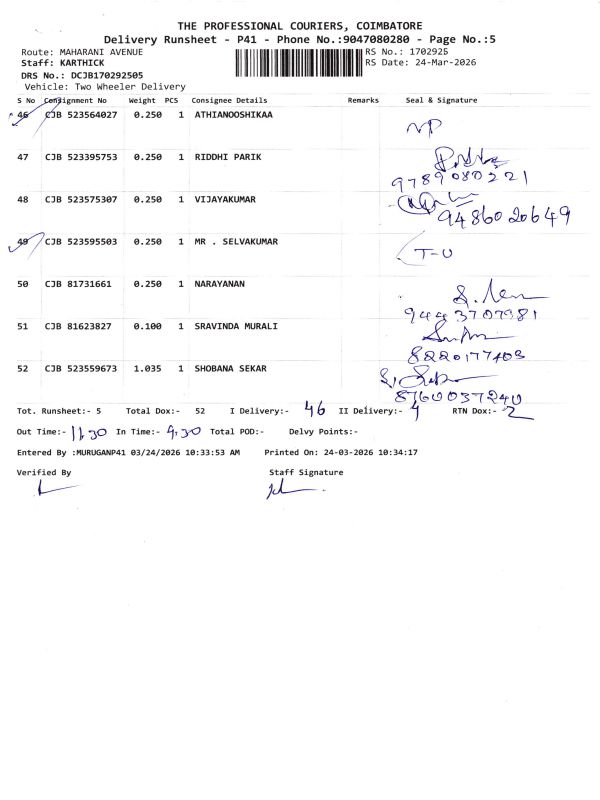 THE PROFESSIONAL COURIERS, COIMBATORE
Delivery Runsheet - P41 - Phone No.:9047080280 - Page No.:5
Route: MAHARANI AVENUE RS No.: 1702925
Staff: KARTHICK RS Date: 24-Mar-2026
DRS No.: DCJB170292505
Vehicle: Two Wheeler Delivery
S No Consignment No Weight PCS Consignee Details Remarks Seal & Signature
46 CJB 523564027 0.250 1 ATHIANOOSHIKAA
NP
47 CJB 523395753 0.250 1 RIDDHI PARIK
9789080221
48 CJB 523575307 0.250 1 VIJAYAKUMAR
9486020649
49 CJB 523595503 0.250 1 MR . SELVAKUMAR
T-U
50 CJB 81731661 0.250 1 NARAYANAN
9443707981
51 CJB 81623827 0.100 1 SRAVINDA MURALI
8220177403
52 CJB 523559673 1.035 1 SHOBANA SEKAR
8760037240
Tot. Runsheet:- 5 Total Dox:- 52 I Delivery:- 46 II Delivery:- 4 RTN Dox:- 2
Out Time:- 11.30 In Time:- 4.30 Total POD:- Delvy Points:-
Entered By :MURUGANP41 03/24/2026 10:33:53 AM Printed On: 24-03-2026 10:34:17
Verified By Staff Signature